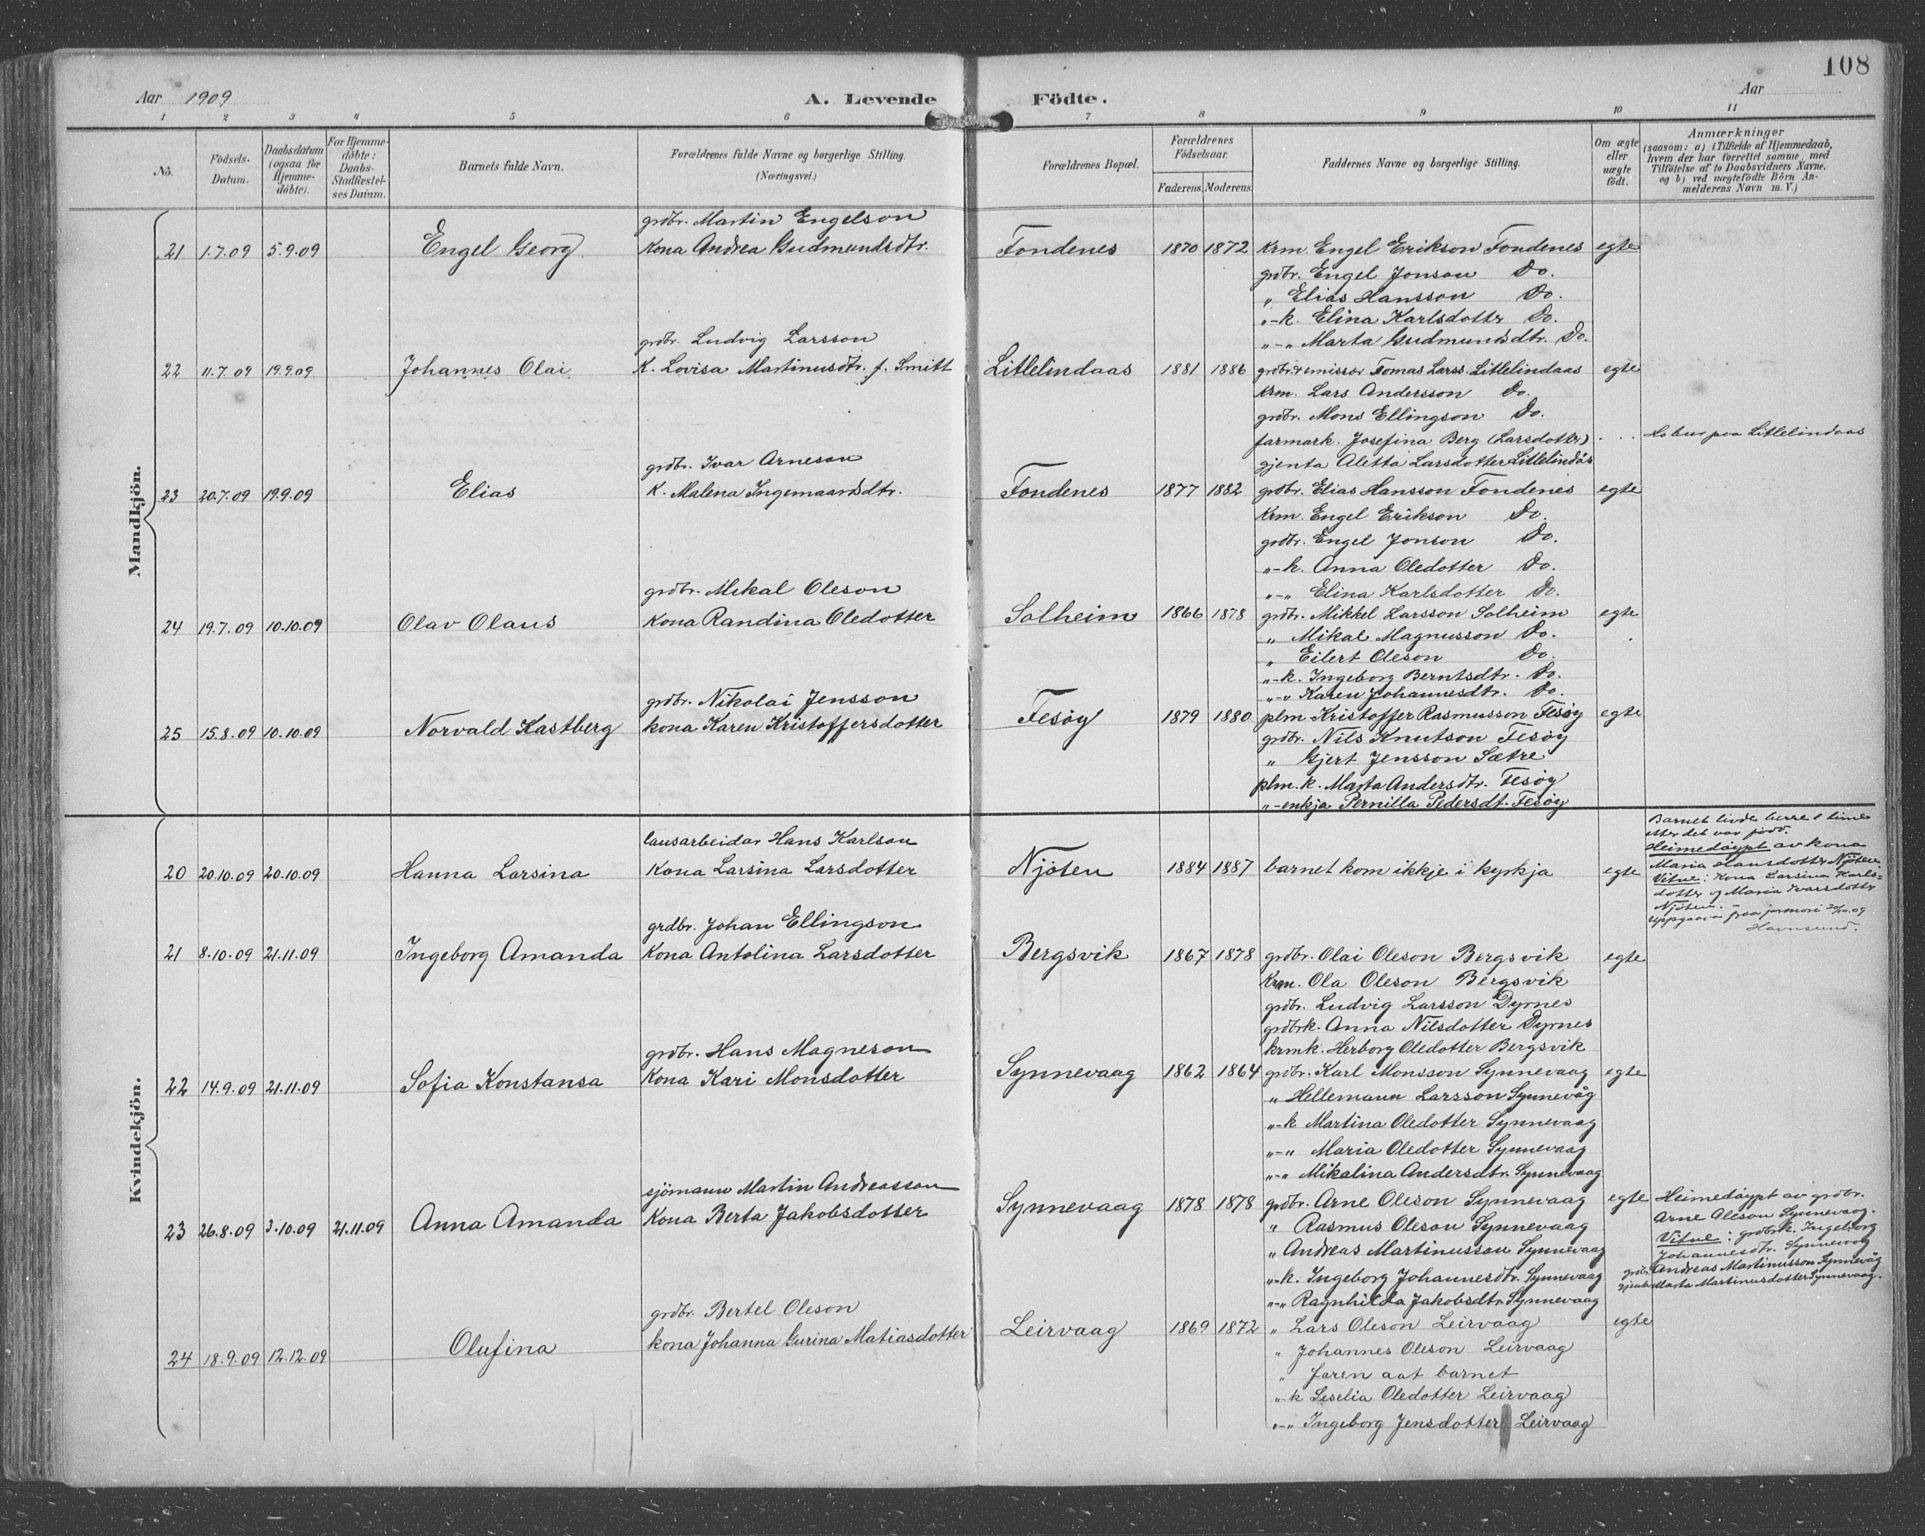 108
Aar 1909
A. Levende Födte.
Aar
1 2 3 4 5 6 7 8 9 10 11
No.
Födsels-Datum.
Daabsdatum (ogsaa for Hjemme-döbte).
For Hjemme-döbte: Daabs-Stadfæstel-ses Datum.
Barnets fulde Navn.
Forældrenes fulde Navne og borgerlige Stilling.
(Næringsvei.)
Forældrenes Bopæl.
Forældrenes Födselsaar.
Faderens. Moderens.
Faddernes Navne og borgerlige Stilling.
Om ægte eller uægte födt.
Anmærkninger
(saasom: a) i Tilfælde af Hjemmedaab,
hvem der har forrettet samme, med
Tilföielse af to Daabsvidners Navne.
og b) ved uægtefödte Börn An-
melderens Navn m. V.)
Mandkjön.
grdbr. Martin Engelson
21 1.7.09 5.9.09 Engel Georg Kona Andrea Gudmundsdtr. Fondenes 1870 1872 Krm. Engel Erikson Fondenes egte
grdbr. Engel Jonson Do.
„ Elias Hansson Do.
„-k. Elina Karlsdottr Do.
„-„ Marta Gudmundsdtr. Do.
grdbr. Ludvig Larsson
22 11.7.09 19.9.09 Johannes Olai K. Lovisa Martinusdtr. f. Smitt Litlelindaas 1881 1886 grdbr. & emissær Tomas Larss. Litlelindaas egte
Krm. Lars Andersson Do.
grdbr. Mons Ellingson Do.
farmark. Josefina Berg (Larsdotter) paa Litlelindaas
gjenta Aletta Larsdotter Litlelindås
grdbr. Ivar Arneson
23 20.7.09 19.9.09 Elias K. Malena Ingemaarsdtr. Fondenes 1877 1882 grdbr. Elias Hansson Fondenes egte
Krm. Engel Erikson Do.
grdbr. Engel Jonson Do.
„-k. Anna Oledotter Do.
„-„ Elina Karlsdotter Do.
grdbr. Mikal Oleson
24 19.7.09 10.10.09 Olav Olaus Kona Randina Oledotter Solheim 1866 1878 grdbr. Mikkel Larsson Solheim egte
„ Mikal Magnusson Do.
„ Eilert Oleson Do.
„-k. Ingeborg Berntsdtr. Do.
„-„ Karen Johannesdtr. Do.
grdbr. Nikolai Jensson
25 15.8.09 10.10.09 Norvald Kastberg kona Karen Kristoffersdotter Fesøy 1879 1880 plm Kristoffer Rasmusson Fesøy egte
grdbr. Nils Knutson Fesøy
„ Gjert Jensson Sætre
plm. k. Marta Andersdtr. Fesøy
„-enkja Pernilla Pedersdt. Fesøy
Kvindekjön.
lausarbeidar Hans Karlson
20 20.10.09 20.10.09 Hanna Larsina Kona Larsina Larsdotter Njøten 1884 1887 barnet kom ikkje i kyrkja egte
Barnet livde berre 1 time
etter det var född.
Heimedøypt av kona
Maria Hansdotter Njøten.
Vitne: Kona Larsina Karls-
dotter og Maria Ivarsdotter
Njøten.
Uppgaava fraa jormori 20/10.09
Havnsund.
grdbr. Johan Ellingson
21 8.10.09 21.11.09 Ingeborg Amanda Kona Antolina Larsdotter Bergsvik 1867 1878 grdbr. Olai Oleson Bergsvik egte
Krm. Ola Oleson Bergsvik
grdbr. Ludvig Larsson Dyrnes
grdbrk. Anna Nilsdotter Dyrnes
krmk. Herborg Oledotter Bergsvik
grdbr. Hans Magneson
22 14.9.09 21.11.09 Sofia Konstansa Kona Kari Monsdotter Synnevaag 1862 1864 grdbr. Karl Monsson Synnevaag egte
„ Hellemann Larsson Synnevåg
„-k Martina Oledotter Synnevaag
„-„ Maria Oledotter Synnevaag
„-„ Mikalina Andersdtr. Synnevaag
sjömann Martin Andreasson
23 26.8.09 3.10.09 21.11.09 Anna Amanda Kona Berta Jakobsdotter Synnevaag 1878 1878 grdbr. Arne Oleson Synnevaag egte
„ Rasmus Oleson Synnevaag
„ Andreas Martinusson Synnevaag
„-k. Ingeborg Johannesdtr. Synnevaag
„-„ Ragnhilda Jakobsdtr. Synnevaag
Heimedøypt av grdbr.
Arne Oleson Synnevaag.
Vitne: grdbrk. Ingeborg
Johannesdtr. Synnevaag
grdbr. Andreas Martinusson Synnevåg
gjenta Marta Martinusdotter Synnevaag.
grdbr. Bertel Oleson
24 18.9.09 12.12.09 Olufina kona Johanna Gurina Matiasdotter Leirvaag 1869 1872 „ Lars Oleson Leirvaag egte
„ Johannes Oleson Leirvaag
„ faren aat barnet
„-k Seselia Oledotter Leirvaag
„-„ Ingeborg Jensdotter Leirvaag